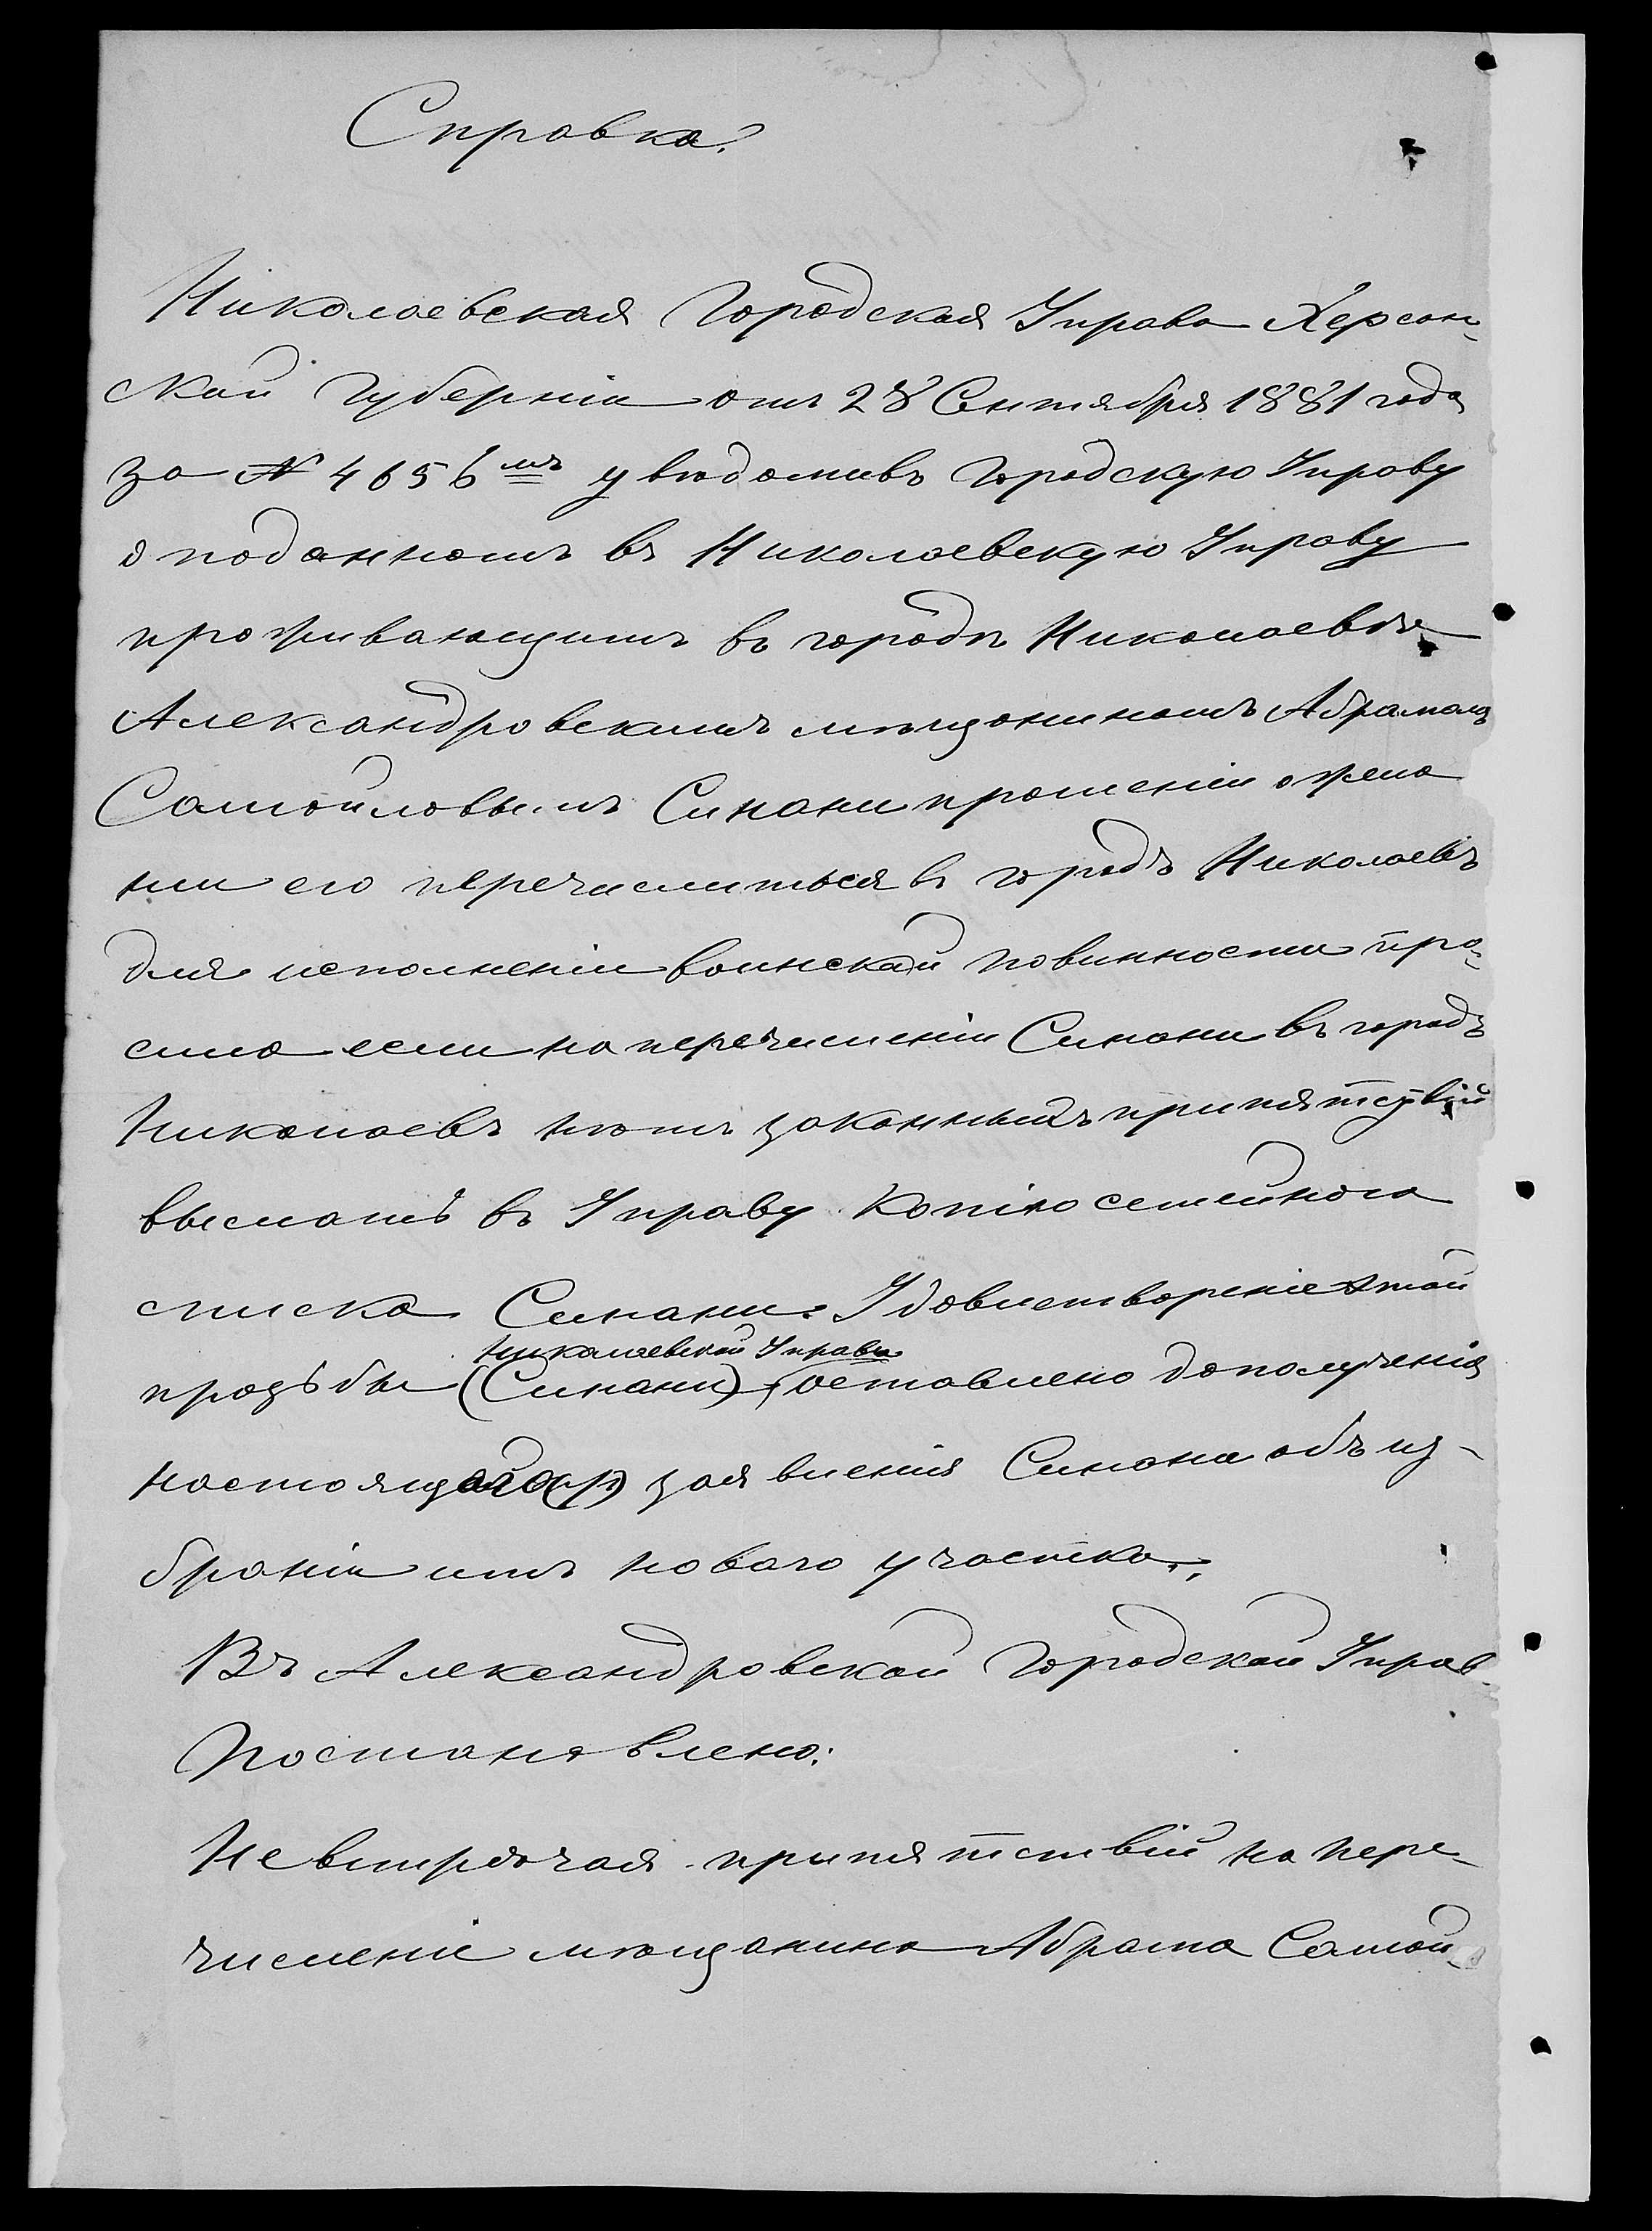 Справка.
Николаевская Городская Управа Херсон-
ской Губерніи отъ 28 Сентября 1881 года
за № 4656мъ увѣдомивъ Городскую Управу
о поданномъ въ Николаевскую Управу
проживающимъ въ городѣ Николаевѣ
Александровскимъ мѣщаниномъ Абрамомъ
Самойловымъ Синани прошеніи о жела
нии его перечислиться въ городъ Николаевъ
для исполненіи воинской повинности про-
сила если на перечисленіи Синани въ городъ
Николаевъ нѣтъ законныхъ припятствій
выслать въ Управу копію семейнаго
списка Синани. Удовлетвореніе этой
Николаевской Управы
прозьбы (Синани) оставлено до полученія
настоящаго заявленія Синани объ из-
браніи имъ новаго участка.
Въ Александровской Городской Управ
Постановлено:
Не встрѣчая припятствій на пере-
численіе мѣщанина Абрама Самой-